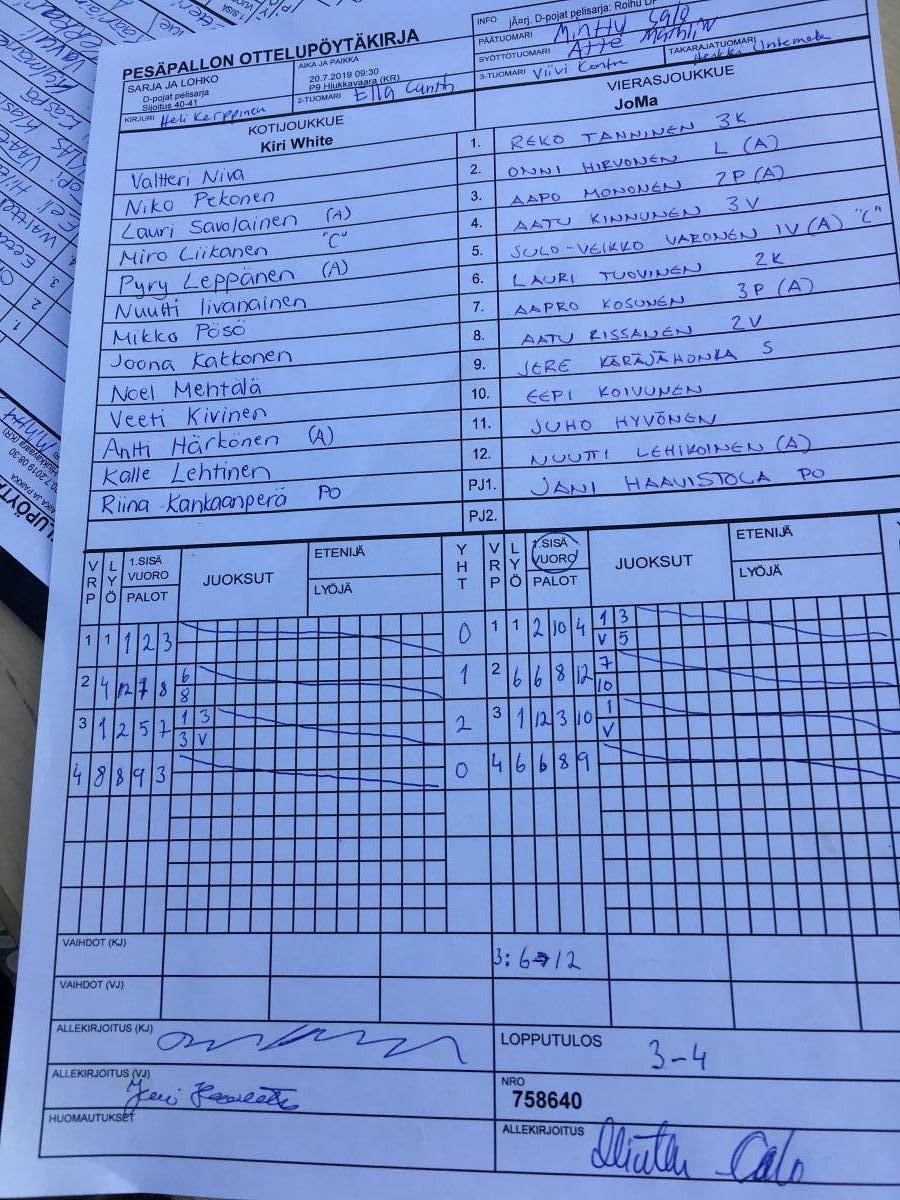 PESÄPALLON OTTELUPÖYTÄKIRJA
INFO jÃ¤rj. D-pojat pelisarja: Roihu DP
PÄÄTUOMARI Minttu Salo
SYÖTTÖTUOMARI Atte
TAKARAJATUOMARI
SARJA JA LOHKO
D-pojat pelisarja
Sijoitus 40-41
AIKA JA PAIKKA
20.7.2019 09:30
P9 Hiukkavaara (KR)
KIRJURI Heli Kerppinen
2-TUOMARI Ella Canth
3-TUOMARI Viivi Kontra
KOTIJOUKKUE
Kiri White
VIERASJOUKKUE
JoMa
Valtteri Niva 1. REKO TANNINEN 3K
Niko Pekonen 2. ONNI HIRVONEN L (A)
Lauri Savolainen (A) 3. AAPO MONONEN 2P (A)
Miro Liikanen "C" 4. AATU KINNUNEN 3V
Pyry Leppänen (A) 5. JULO-VEIKKO VARONEN IV (A) "C"
Nuutti Iivanainen 6. LAURI TUOVINEN 2K
Mikko Pösö 7. AAPRO KOSUNEN 3P (A)
Joona Kakkonen 8. AATU RISSANEN 2V
Noel Mehtälä 9. JERE KÄRÄJÄHONKA S
Veeti Kivinen 10. EEPI KOIVUNEN
Antti Härkönen (A) 11. JUHO HYVÖNEN
Kalle Lehtinen 12. NUUTTI LEHIKOINEN (A)
Riina Kankaanperä PO PJ1. JANI HAAVISTOLA PO
PJ2.
VRP LYÖ 1.SISÄ VUORO PALOT JUOKSUT ETENIJÄ LYÖJÄ YHT VRP LYÖ 1.SISÄ VUORO PALOT JUOKSUT ETENIJÄ LYÖJÄ
1 1 1 2 3 0 1 1 2 10 4 1 3
V 5
2 4 12 7 8 6 1 2 6 6 8 12 7
8 10
3 1 2 5 7 1 3 2 3 1 12 3 10 1
3 V V
4 8 8 9 3 0 4 6 6 8 9
VAIHDOT (KJ) 3: 6→12
VAIHDOT (VJ)
ALLEKIRJOITUS (KJ)
LOPPUTULOS 3-4
ALLEKIRJOITUS (VJ)
NRO
758640
HUOMAUTUKSET
ALLEKIRJOITUS Minttu Salo